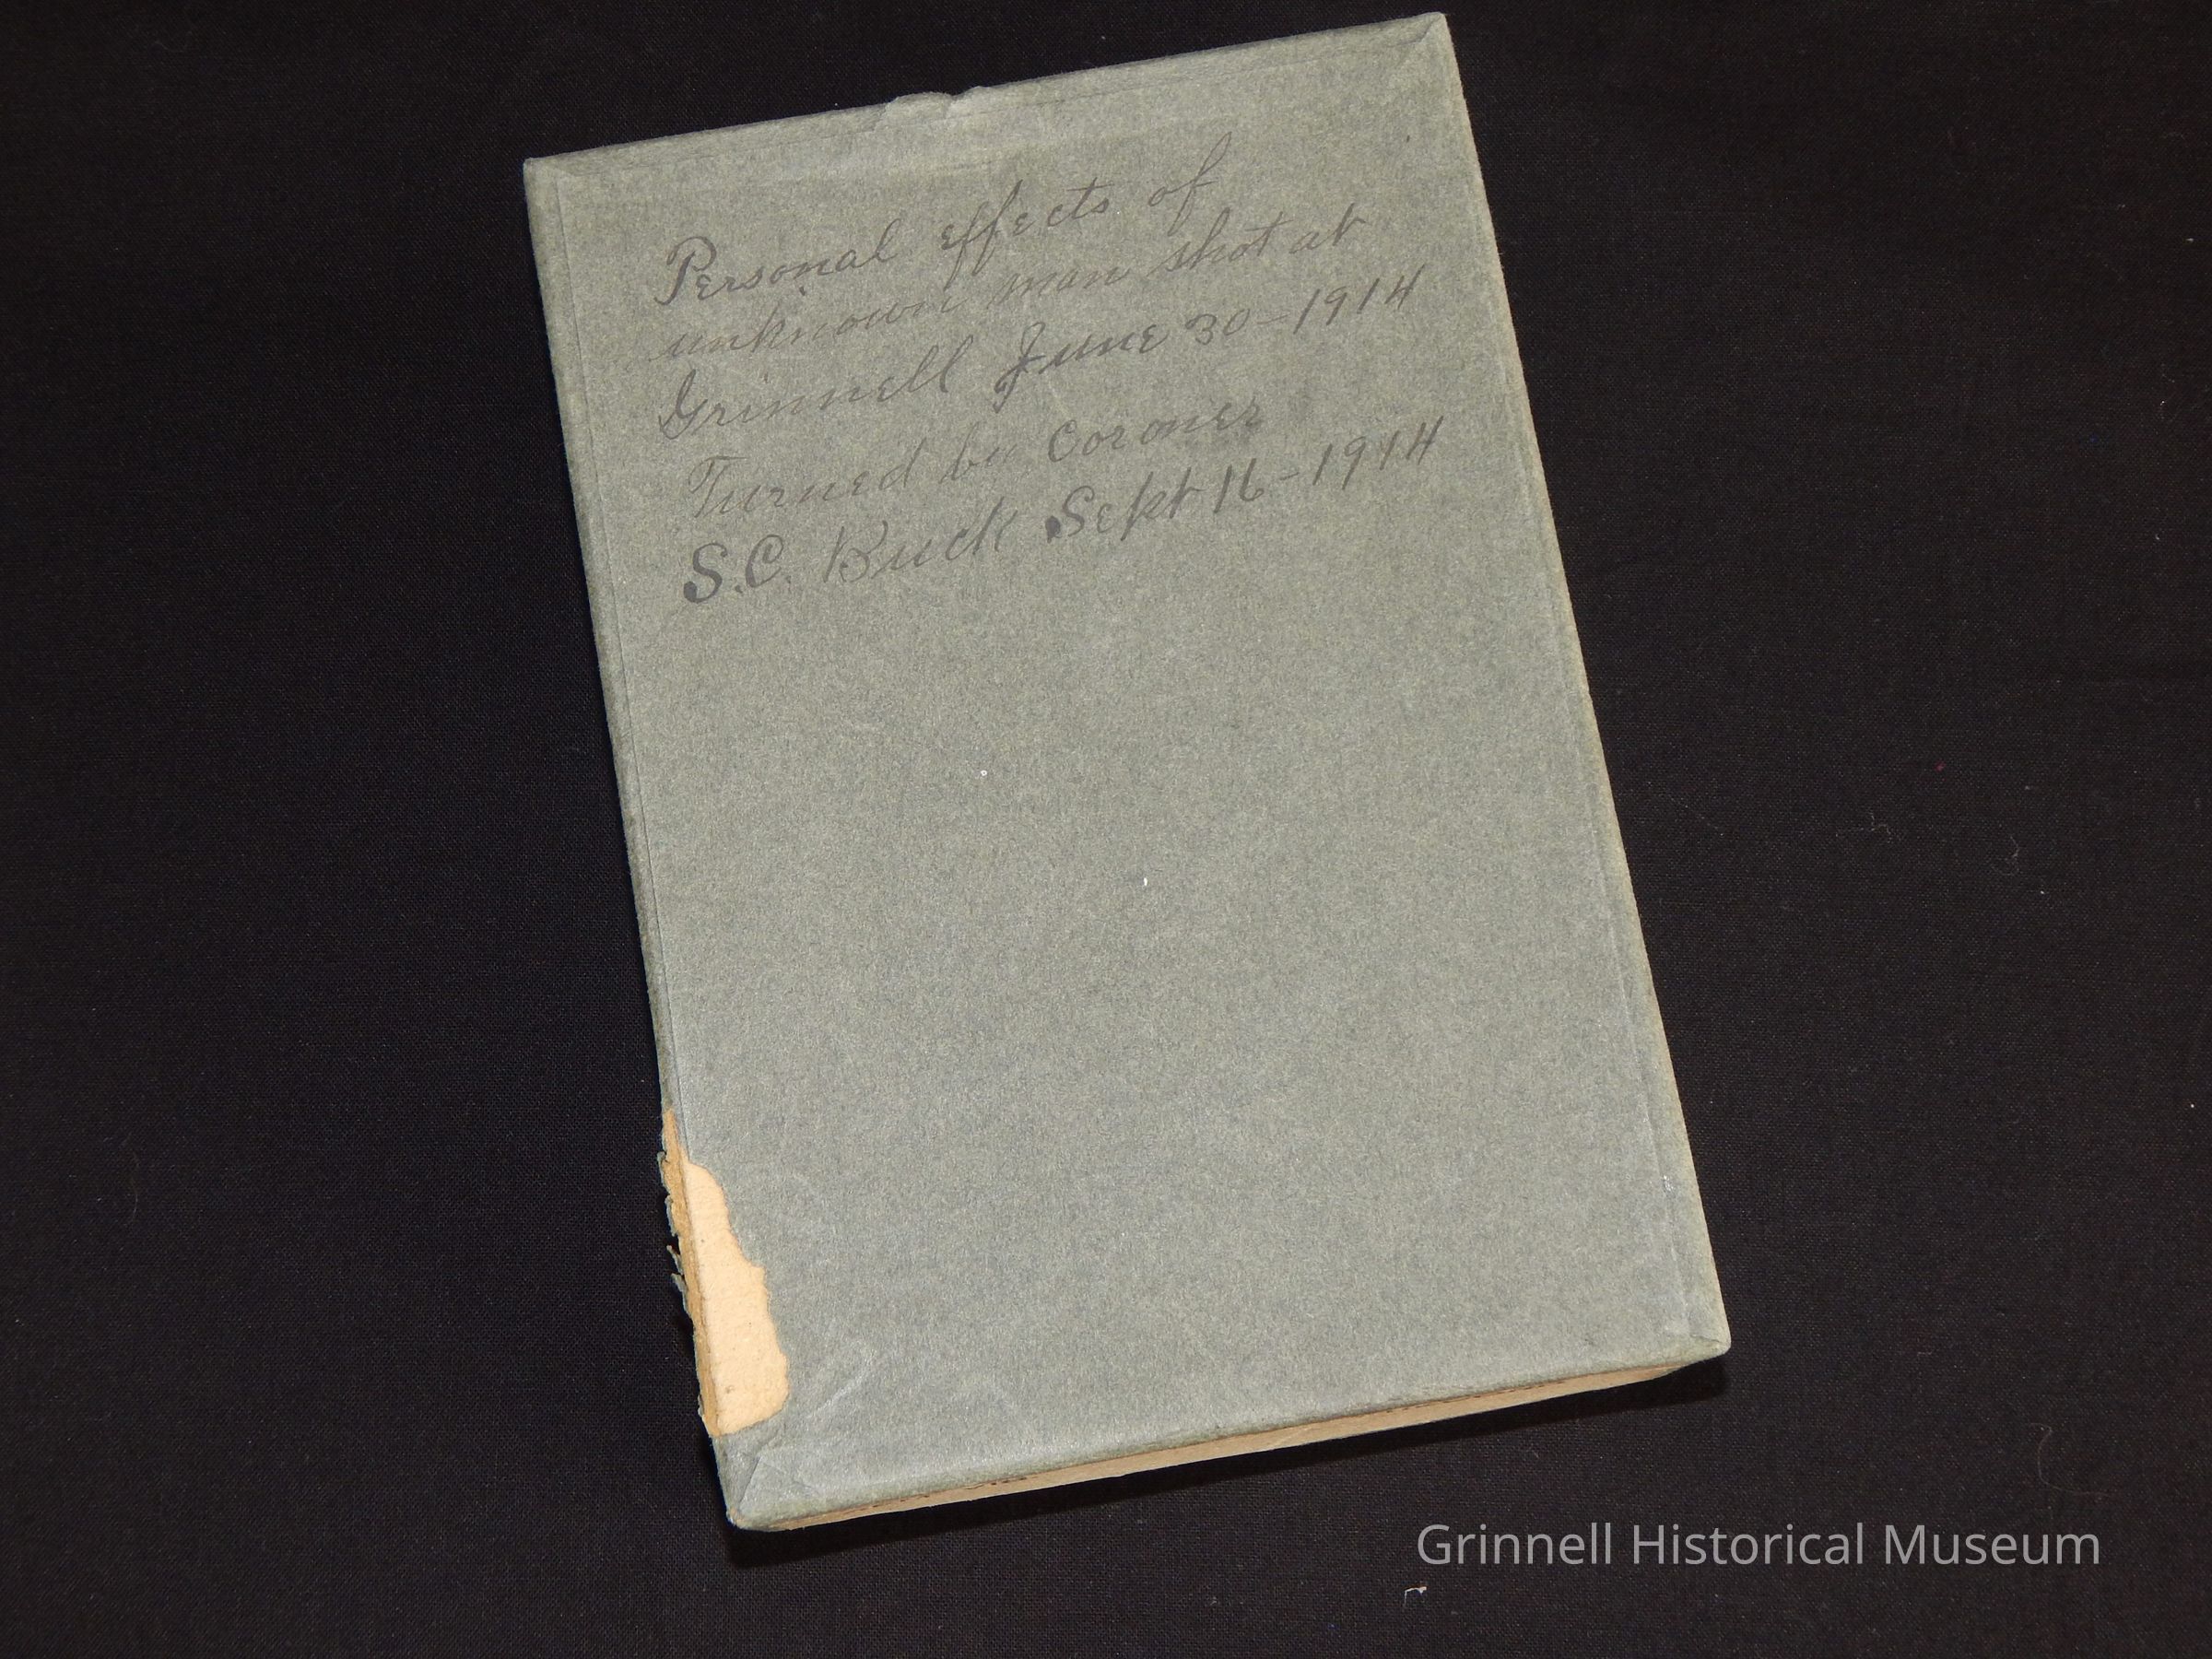 Personal effects of
unknown man shot at
Grinnell June 30-1914
Turned by Coroner
S.C. Buck Sept 16-1914
Grinnell Historical Museum